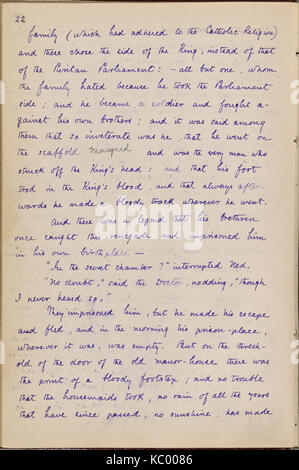 22
family (which had adhered to the Catholic Religion)
and these chose the side of the King, instead of that
of the Puritan Parliament: - all but one, whom
the family hated because he took the Parliament
side; and he became a soldier and fought a-
gainst his own brothers; and it was said among
them that so inveterate was he, that he went on
the scaffold masqued and was the very man who
struck off the King's head; and that his foot
trod in the King's blood, and that always after-
wards he made a bloody track wherever he went.
And there was a legend that his brethren
once caught this renegade and imprisoned him
in his own birthplace —
"In the secret chamber?" interrupted Ned.
"No doubt," said the Doctor, nodding, "though
I never heard so."
They imprisoned him, but he made his escape
and fled, and in the morning his prison-place,
wherever it was, was empty. But on the thresh-
old of the door of the old manor-house there was
the print of a bloody footstep; and no trouble
that the housemaids took, no rain of all the years
that have since passed, no sunshine, has made
alamy stock photo
KC0086
www.alamy.com